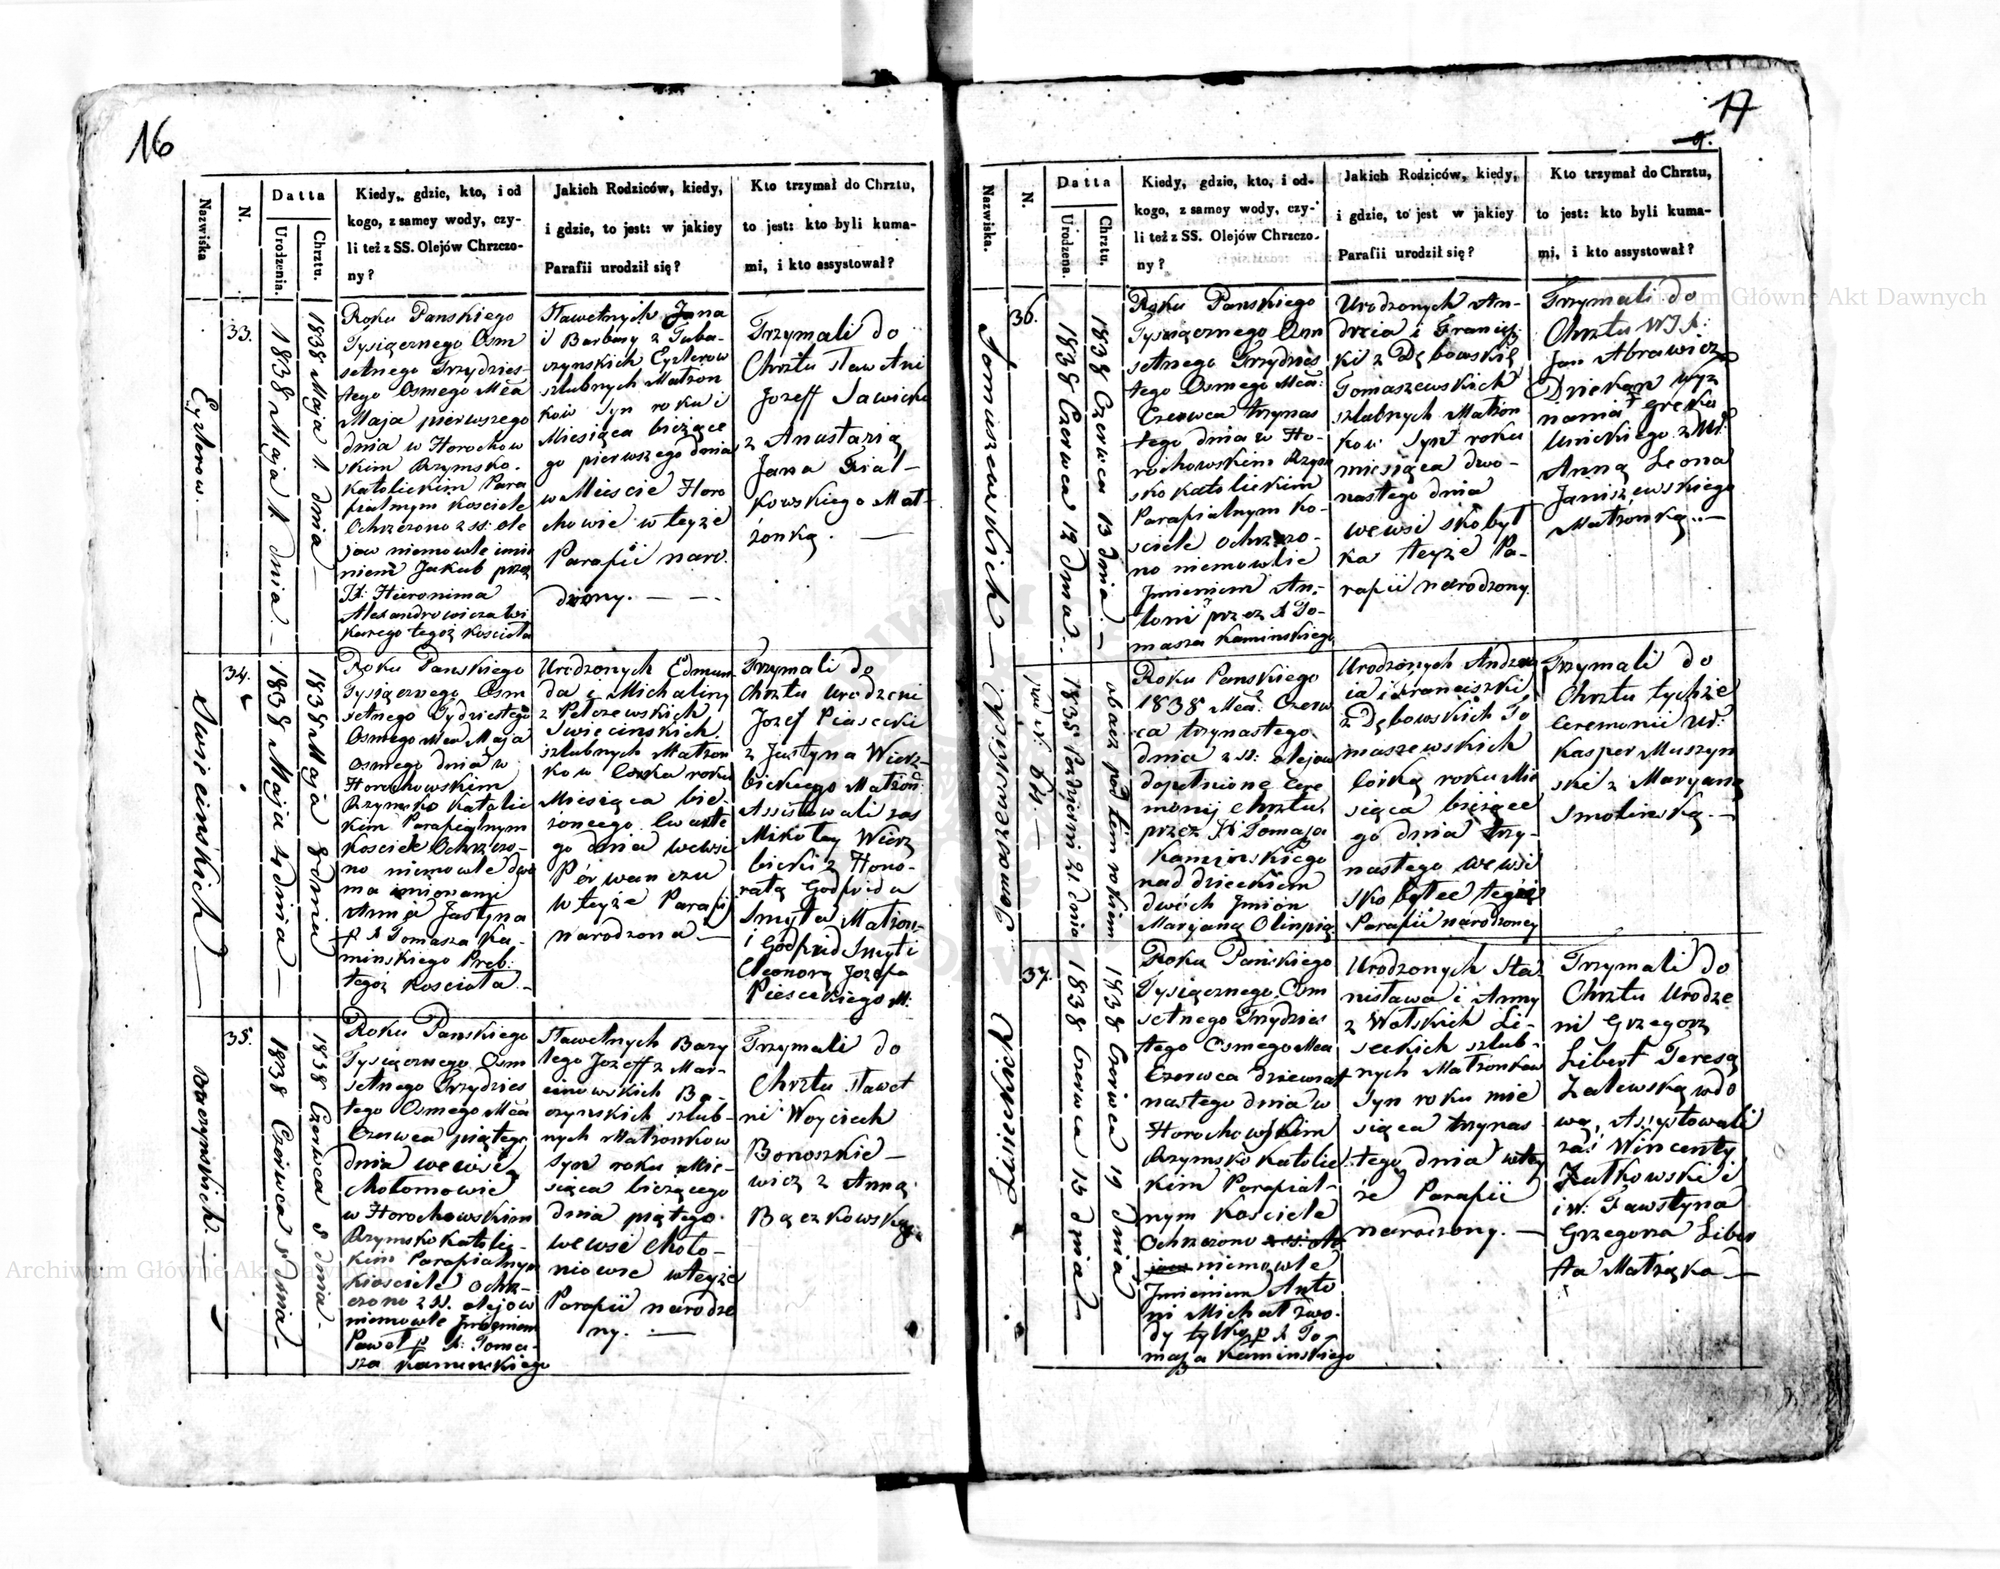 16
Nazwiska
N.
Datta
Urodzenia.
Chrztu.
Kiedy, gdzie, kto, i od
kogo, z samey wody, czy-
li też z SS. Olejów Chrzczo-
ny?
Jakich Rodziców, kiedy,
i gdzie, to jest: w jakiey
Parafii urodził się?
Kto trzymał do Chrztu,
to jest: kto byli kuma-
mi, i kto assystował?
Eyzlerow.
33.
1838 Maja 1 dnia. —
1838 Maja 1. dnia —
Roku Panskiego
Tysiącznego Osm
setnego Trzydzies-
tego Osmego Mca
Maja pierwszego
dnia w Horochow
skim Rzymsko.
Katolickim Para
fialnym Kosciele
Ochrzczono z ss: Ole
jow niemowle imie
niem Jakub przez
X: Hieronima
Alexandrowicza Wi
karego tegoż Kosciola
Sławetnych Jana
i Barbary z
Eyzlerow
szlubnych Małzon
kow Syn roku i
Miesiąca bieżące
go pierwszego dnia
w Miescie Horo
chowie w teyże
Parafii naro
dzony. — —
Trzymali do
Chrztu Sławetni
Jozeff Sawicki
z Anastazią
Jana Fial-
kowskiego Mał-
żonką. —
Swiecinskich —
34.
1838 Maja 4 dnia —
1838 Maja 8 dnia
Roku Panskiego
Tysiącznego Osm
setnego Trzydziestego
Osmego Mca Maja
Osmego dnia w
Horochowskim
Rzymsko Katolic
kim Parafialnym
Kosciele Ochrzczo-
no niemowle dwo
ma imionami
Justyna
p X Tomasza Ka-
minskiego Prob:
tegoż Kosciola. -
Urodzonych Edmun
da i Michaliny
z Pelczewskich
Swiecinskich.
szlubnych Małzon
kow Corka roku
Miesiąca bie-
żoncego Czwarte
go dnia we wsi
Pórwanczu
w teyże Parafij
narodzona —
Trzymali do
Chrztu Urodzeni
Jozef Piasecki
z Justyna Wierz-
bickiego Małzon:
Assistowali zas
Mikołay Wierz
bicki z Hono-
ratą Godfrida
Smyta Małzon-
i Godfrid Smyt i
Eleonorą Jozefa
Pieseckiego M:
Baczynskich. —
35.
1838 Czerwca 5 dnia —
1838 Czerwca 5 dnia -
Roku Panskiego
Tysiącznego Osm
setnego Trzydzies
tego Osmego Mca
Czerwca piątego
dnia we wsi
Chołoniowie
w Horochowskim
Rzymsko Katolic-
kim Parafialnym
Kosciele Ochrz-
czono z SS. olejow
niemowle Imieniem
Paweł p X: Toma-
sza Kaminskiego
Sławetnych Bazy
lego Jozeff z Mar-
cinowskich Ba-
czynskich szlub-
nych Małzonkow
Syn roku Mie-
siąca bieżącego
dnia piątego
we wsi Choło-
niowie w teyże
Parafii narodzo
ny. —
Trzymali do
Chrztu Sławet
ni Woyciech
Bonoszkie-
wicz z Anną
Bączkowską.
17
Nazwiska.
N.
Datta
Urodzena.
Chrztu.
Kiedy, gdzie, kto, i od-
kogo, z samey wody, czy-
li też z SS. Olejów Chrzczo-
ny?
Jakich Rodziców, kiedy,
i gdzie, to jest w jakiey
Parafii urodził się?
Kto trzymał do Chrztu,
to jest: kto byli kuma-
mi, i kto assystował?
Tomaszewskich —
36.
1838 Czerwca 12 dnia.
1838 Czerwca 13 dnia. —
Roku Panskiego
Tysiącznego Osm
setnego Trzydzies
tego Osmego Mca:
Czerwca trzynas
tego dnia w Ho-
rochowskim Rzym
sko Katolickim
Parafialnym Ko-
sciele ochrzczo-
no niemowlie
Imieniem An-
toni przez X To-
masza Kaminskiego
Urodzonych An-
drzeia i Francisz
ki z Dębowskich
Tomaszewskich
szlubnych Małzon
kow Syn roku
miesiąca dwo-
nastego dnia
we wsi Skobył
ka teyże Pa-
rafii narodzony.
Trzymali do
Chrztu WJX:
Jan Abrawicz
Dziekan wyz
nania Grecko
Unickiego z W:
Anną Leona
Janiszewskiego
Małzonką. —
Tomaszewskich
pod N. 64. —
1835 Pazdziern 21 dnia
obacz pod tem rokiem
Roku Panskiego
1838 Mca: Czerw
ca trzynastego
dnia z SS: olejow
dopełniono Cere
monij Chrztu
przez X Tomasza
Kaminskiego
nad dzieckiem
dwóch Imion
Maryanę Olimpią
Urodzonych Andrze
ia i Franciszki
z Dębowskich To
maszewskich
Corką roku Mie
siąca bieżące
go dnia trzy-
nastego we wsi
Skobyłce tegoż
Parafii narodzoney
Trzymali do
Chrztu tychże
Ceremonii W:
Kasper Muszyn
ski z Maryaną
Smolinską. —
Lisieckich
37.
1838 Czerwca 13 dnia —
1838 Czerwca 19 dnia
Roku Panskiego
Tysiącznego Osm
setnego Trzydzies
tego Osmego Mca
Czerwca dziewiat
nastego dnia w
Horochowskim
Rzymsko Katolic
kim Parafial-
nym Kosciele
Ochrzczono z SS. ole
jow niemowle
Imieniem Anto
ni Michał z wo-
dy tylko p X To-
masza Kaminskiego
Urodzonych Sta
nisława i Anny
z Wolskich Li-
sieckich szlub-
nych Małzonkow
Syn roku mie
siąca trzynas
tego dnia w tey
że Parafii
narodzony. —
Trzymali do
Chrztu Urodze
ni Grzegorz
Libert Teresą
Zalewską wdo
wą, Assystowali
zaś Wincenty
Zutkowski i
i W: Fawstyna
Grzegorza Liber
ta Małżąka —
Archiwum Główne Akt Dawnych
Archiwum Główne Akt Dawnych